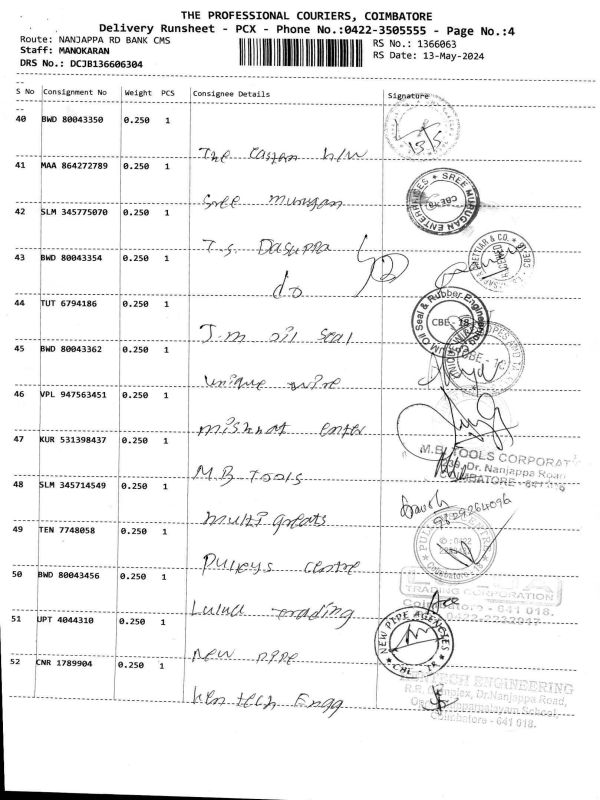 THE PROFESSIONAL COURIERS, COIMBATORE
Delivery Runsheet - PCX - Phone No.:0422-3505555 - Page No.:4
Route: NANJAPPA RD BANK CMS
RS No.: 1366063
Staff: MANOKARAN
RS Date: 13-May-2024
DRS No.: DCJB136606304
S No Consignment No Weight PCS Consignee Details Signature
40 BWD 80043350 0.250 1
The Eastern h/w
41 MAA 864272789 0.250 1
Sree murugan
SREE MURUGAN ENTERPRISES
42 SLM 345775070 0.250 1
T.S. Dasuppa
43 BWD 80043354 0.250 1
do
44 TUT 6794186 0.250 1
J.m oil seal
Oil Seal & Rubber Engineering
CBE - 18
45 BWD 80043362 0.250 1
unique wire
CBE - 18
46 VPL 947563451 0.250 1
47 KUR 531398437 0.250 1
M.B Tools
M.B. TOOLS CORPORAT
Dr. Nanjappa Road
COIMBATORE - 641 018
48 SLM 345714549 0.250 1
multi greats
49 TEN 7748058 0.250 1
Pulleys centre
Coimbatore - 18
50 BWD 80043456 0.250 1
Lulua trading
TRADING CORPORATION
Coimbatore - 641 018.
51 UPT 4044310 0.250 1
new pipe
NEW PIPE AGENCIES
CBE - 18
52 CNR 1789904 0.250 1
Ken tech Engg
KENTECH ENGINEERING
R.R. Complex, Dr.Nanjappa Road,
School,
Coimbatore - 641 018.